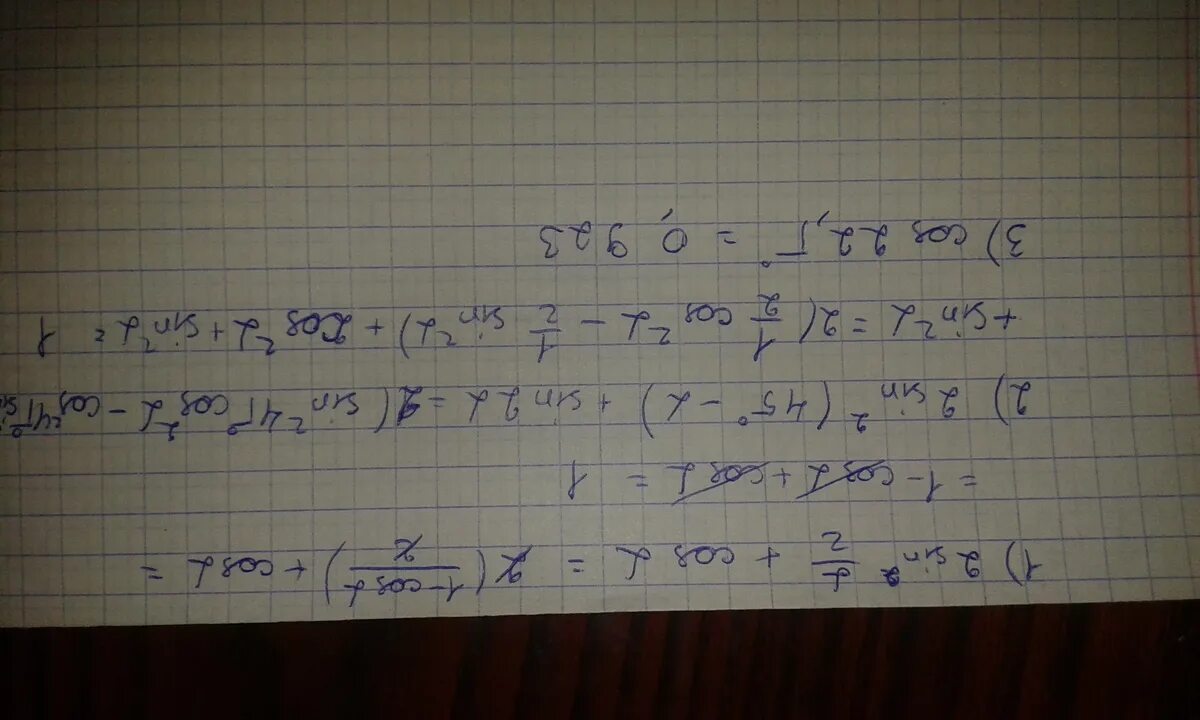 1) 2 sin² α/2 + cos α = 2 ((1-cos α)/2) + cos α =
= 1 - cos α + cos α = 1
2) 2 sin² (45° - α) + sin 2α = 2 (sin² 45° cos² α - cos² 45° si
+ sin² α = 2 (1/2 cos² α - 1/2 sin² α) + 2cos² α + sin² α = 1
3) cos 22,5° = 0,923